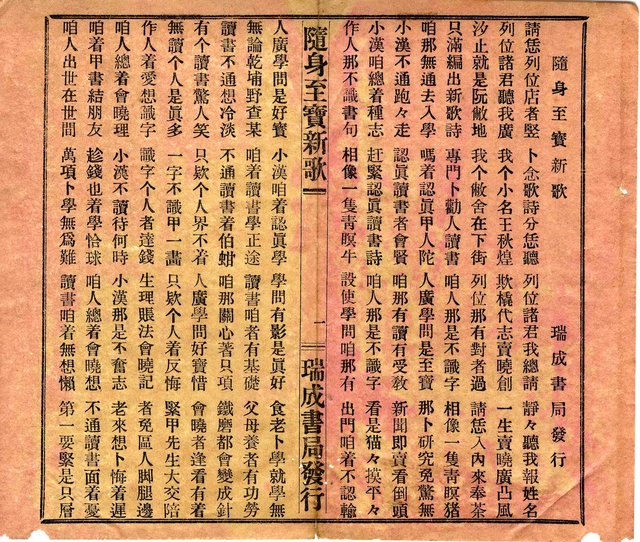 隨身至寶新歌　瑞成書局發行
請恁列位店者竪　卜念歌詩分恁聽　列位諸君我總請　靜々聽我報姓名
列位諸君聽我廣　我个小名王秋煌　欺橈代志賣曉創　一生賣曉廣凸風
汐止就是阮敝地　我个敝舍在下街　列位那有對者過　請恁入內來奉茶
只滿編出新歌詩　專門卜勸人讀書　咱人那是不識字　相像一隻靑暝猪
咱那無通去入學　嗎着認眞甲人陀　人廣學問是至寶　那卜研究免驚無
小漢不通跑々走　認眞讀書者會賢　咱那有讀有受敎　新聞即賣看倒頭
小漢咱總着種志　赶緊認眞讀書詩　咱人那是不識字　看是猫々摸平々
作人那不識書句　相像一隻靑暝牛　設使學問咱那有　出門咱着不認輸
隨身至寶新歌　一　瑞成書局發行
人廣學問是好寶　小漢咱着認眞學　學問有影是眞好　食老卜學就學無
無論乾埔野查某　咱着讀書學正途　讀書咱者有基礎　父母養者有功勞
讀書不通想冷淡　不通讀書着伯蚶　咱那關心著只項　鐵磨都會變成針
有个讀書驚人笑　只欵个人界不着　人廣學問好寶惜　會曉者逢看有着
無讀个人是眞多　一字不識甲一畵　只欵个人着反悔　緊甲先生大交陪
作人着愛想識字　識字个人者達錢　生理賬法會曉記　者免區人脚腿邊
咱人總着會曉理　小漢不讀待何時　小漢那是不奮志　老來想卜悔着遲
咱着甲書結朋友　趁錢也着學恰球　咱人總着會曉想　不通讀書面着憂
咱人出世在世間　萬項卜學無爲難　讀書咱着無想懶　第一要緊是只層